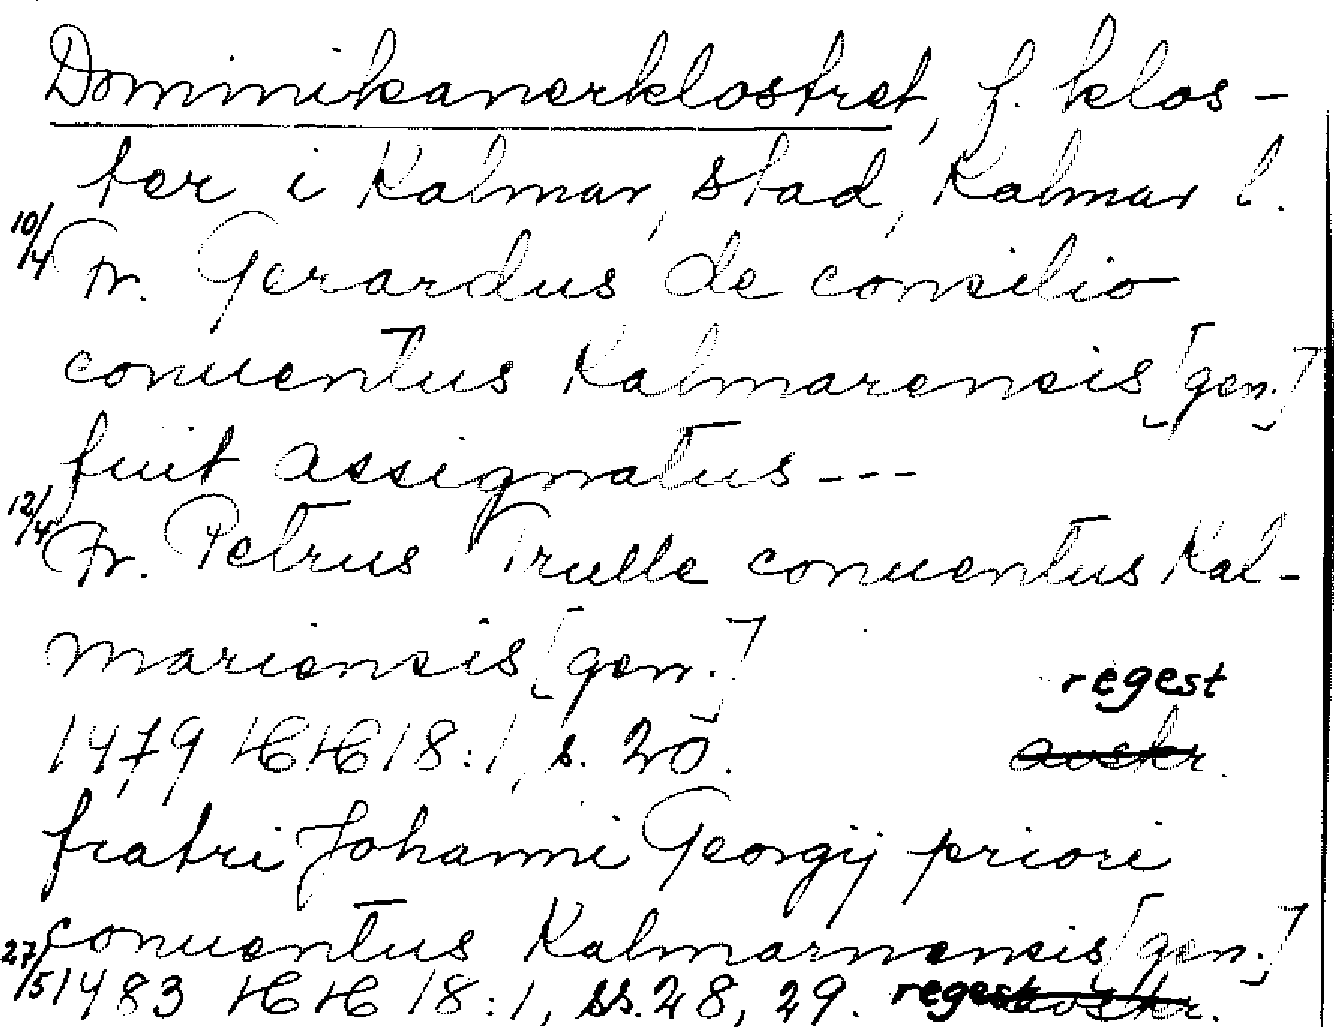 Dominikanerklostret, f. klos-
ter i Kalmar, stad, Kalmar l.
10/4 Fr. Gerardus de consilio
conuentus Kalmarensis [gen.]
fuit assignatus ---
12/4 Fr. Petrus Trulle conuentus Kal-
mariensis [gen.]
regest
1479 HH 18:1, s. 20. avskr.
fratri Johanni Georgij priori
conuentus Kalmarnensis [gen.]
27/5 1483 HH 18:1, ss. 28, 29. regest avskr.